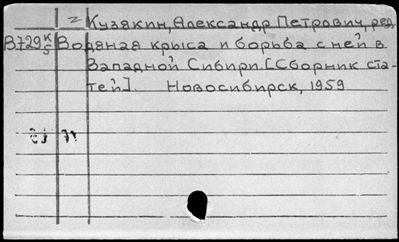 Кузякин, Александр Петрович, ред.
В729 К/5 Водяная крыса и борьба с ней в
Западной Сибири. [Сборник ста-
тей]. Новосибирск, 1959